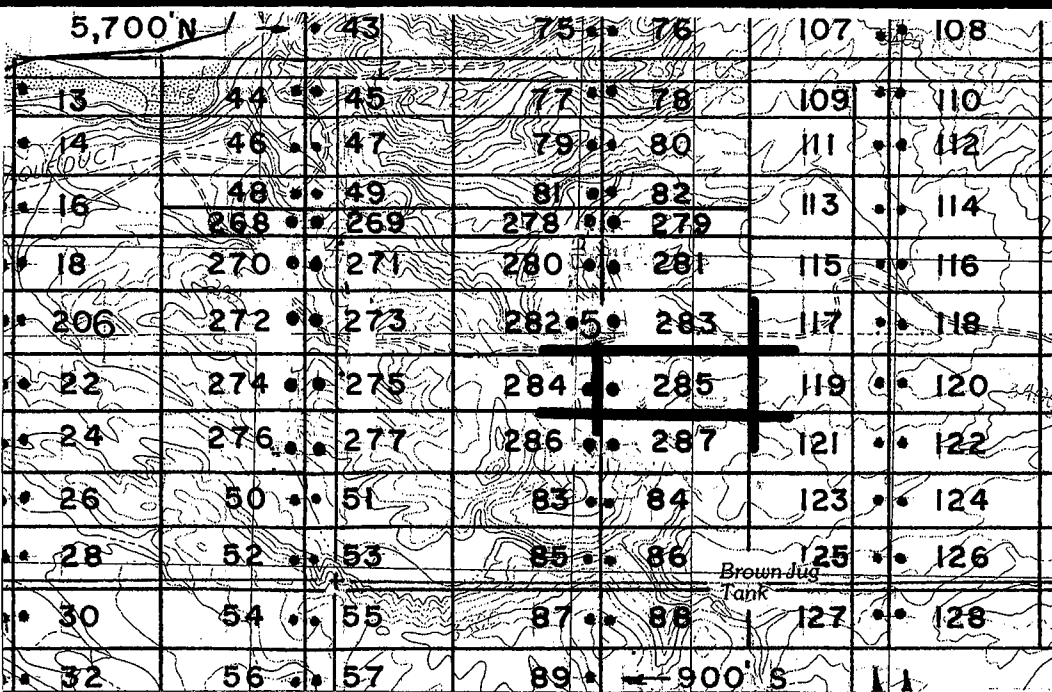 5,700' N 43 75 76 107 108
13 44 45 77 78 109 110
14 46 47 79 80 111 112
16 48 49 81 82 113 114
268 269 278 279
18 270 271 280 281 115 116
206 272 273 282 5 283 117 118
22 274 275 284 285 119 120
24 276 277 286 287 121 122
26 50 51 83 84 123 124
28 52 53 85 86 125 126
Brown Jug
Tank
30 54 55 87 88 127 128
32 56 57 89 900' S